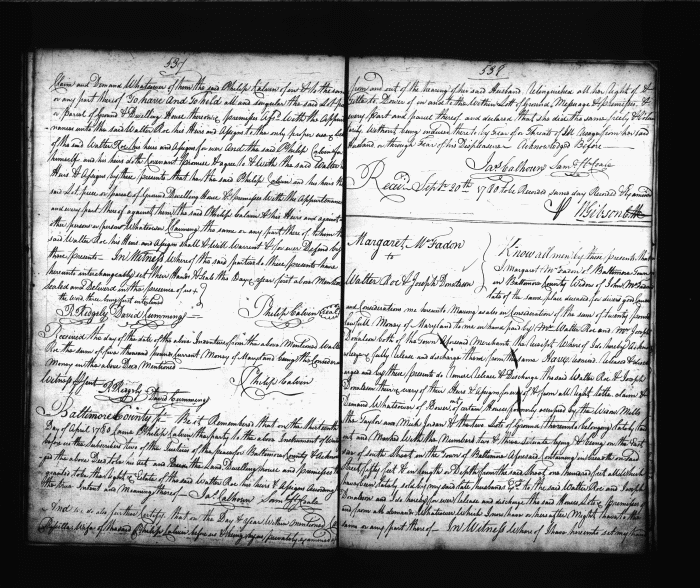 537
Claim and Demand Whatsoever of them the said Philip Calvin of in & to the same
or any part thereof To have And To hold all and singular the said Lot piece
or Parcel of Ground & Dwelling House thereon & premises With the Appurte
nances unto the said Walter Roe his Heirs and Assigns to the only proper use
of the said Walter Roe his heirs and Assigns for ever And the said Philip Calvin for
himself and his heirs doth Covenant Promise & agree to & With the said Walter
Heirs & Assigns by these presents that he the said Philip Calvin and his heirs the
said Lot piece or parcel of Ground Dwelling House & premises With the Appurtenances
and every part thereof against him the said Philip Calvin & his Heirs and against
other person or persons Whatsoever Claiming the same or any part thereof to him the
said Walter Roe his Heirs and Assigns shall & Will Warrant & for ever Defend by
these presents In Witness Whereof the said parties to these presents have
hereunto interchangeably set their Hands & Seals the Day & Year first above Mentioned
Sealed and Delivered in the presence of us
the word three being first interlined
R Ridgely David Cumming
Philip Calvin Seal
Received the day of the date of the above Indenture from the above Mentioned Walter
Roe the sum of four thousand pounds Current Money of Maryland being the Consideration
Money in the above Deed Mentioned
Witness
R Ridgely
David Cumming
Philip Calvin
Baltimore County Be it Remembered that on the thirteenth
Day of April 1780 Came Philip Calvin the party to the above Instrument of
before us the subscribers two of the Justices of the peace for Baltimore County &
the above Deed to be his act and Deed & the Land Dwelling house and premises
granted to be the Right & Estate of the said Walter Roe his heirs & Assigns According
the true Intent and Meaning thereof Jas. Calhoun
And We do also further Certify that on the Day & Year Within Mentioned
Wife of the said Philip Calvin before us & being by us privately examined
538
from and out of the hearing of her said Husband Relinquished all her Right of &
title to Dower of in and to the Within Lott of Ground Messuage & premises &
every part and parcel thereof and declared that she did the same freely & Volun
tarily Without being induced thereto by fear or Threats of Ill Usage from her said
Husband or through fear of his Displeasure Acknowledged Before
Jas Calhoun
Recd. Sept. 20th 1780 to be Recorded same day Recorded & Examined
W Gibson
Margaret McFadon
to
Walter Roe & Joseph Donelson
Know all men by these presents that
I Margaret McFadon of Baltimore Town
in Baltimore County Widow of John McFadon
late of the same place deceased for divers good Causes
and Considerations me hereunto Moving as also in Consideration of the sum of twenty pounds
Money of Maryland to me in hand paid by Mr. Walter Roe and Mr. Joseph
Donelson both of the Town aforesaid Merchants the receipt Whereof I do hereby
& fully Release and discharge them from the same Have Remised Released & disch
arged and by these presents do Remise Release & Discharge the said Walter Roe & Joseph
Donelson their & every of their Heirs & Assigns of and from all Right title claim &
Demand Whatsoever of Dower of certain Houses formerly occupied by the
Taylor and and the two Lots of Ground thereunto belonging
out and Marked With the Numbers two & three situate lying & being on the West
side of South Street in the Town of Baltimore aforesaid Containing in breadth on said
Street fifty feet & in length or Depth from the said Street one hundred feet
have been lately sold by my said late Husband to the said Walter Roe and Joseph
Donelson and I do hereby for ever Release and discharge the said Houses Lots & premises
and from all demands Whatsoever Which I now have or hereafter Might have to the
same or any part thereof In Witness Whereof I have hereunto set my